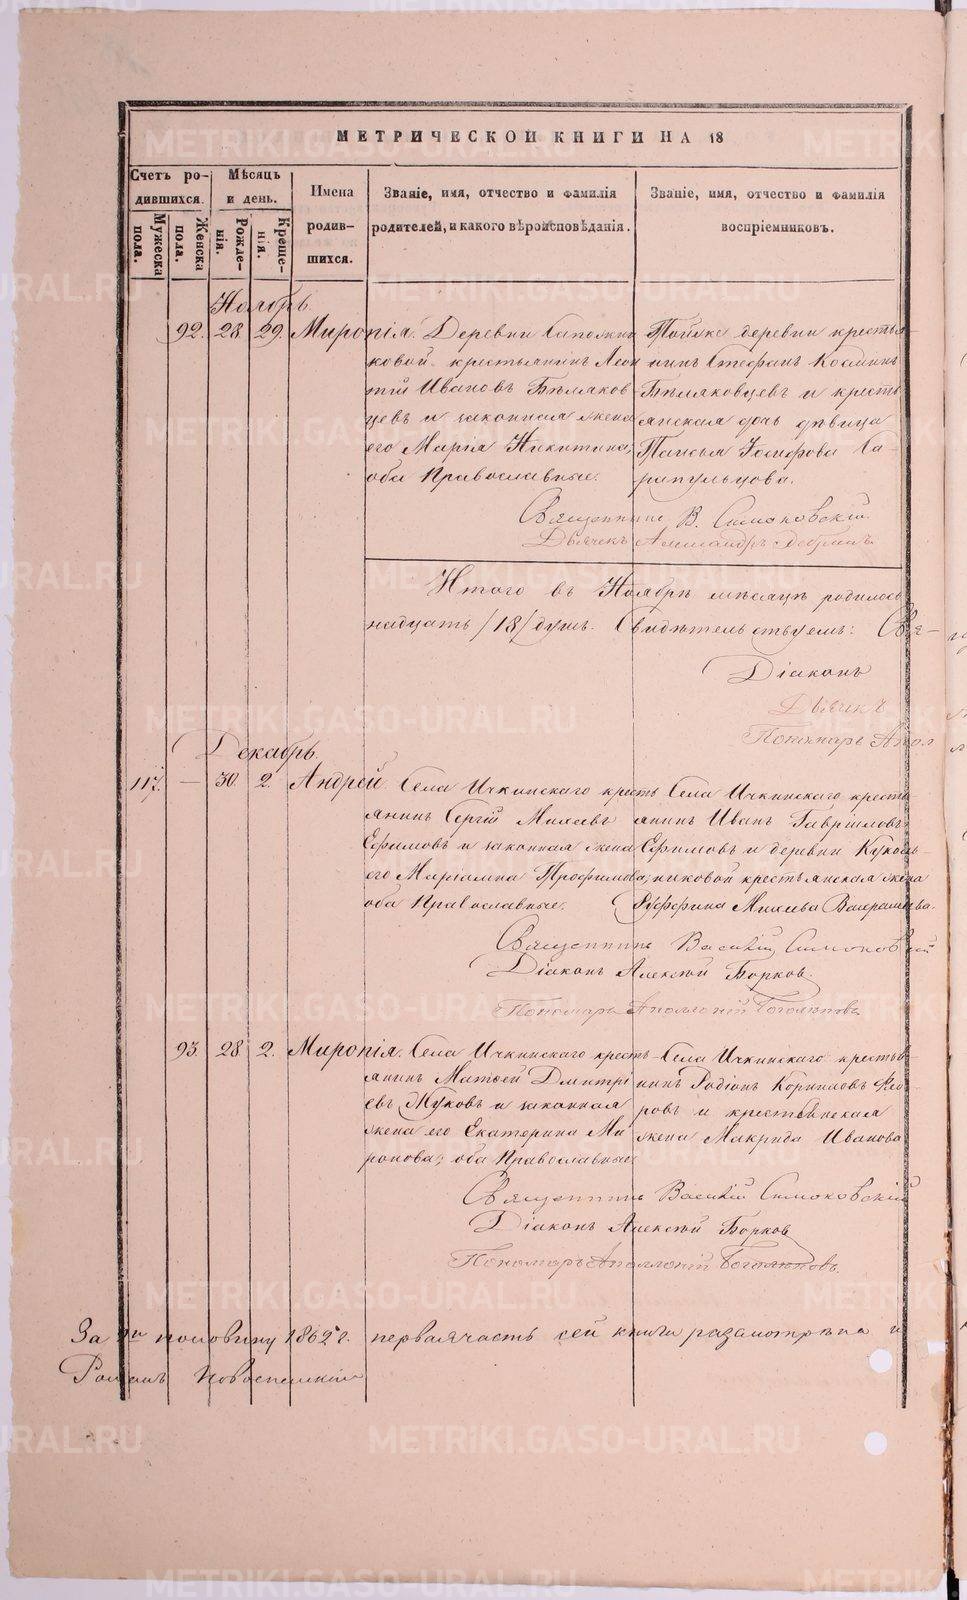 МЕТРИЧЕСКОЙ КНИГИ НА 18
Счетъ родившихся.
Мужеска пола.
Женска пола.
Мѣсяцъ и день.
Рожденія.
Крещенія.
Имена родившихся.
Званіе, имя, отчество и фамилія родителей, и какого вѣроисповѣданія.
Званіе, имя, отчество и фамилія воспріемниковъ.
Ноябрь
92. 28. 29. Миропія.
Деревни
ковой крестьянинъ Леон
тій Ивановъ Бѣляков
цевъ и законная жена
его Марія Никитина;
оба Православные.
Тойже деревни крестья
нинъ Стефанъ Косминъ
Бѣляковцевъ и кресть
янская дочь дѣвица
Таисья Іосифова Ка-
рапульцова.
Священникъ В. Симоновскій
Дьячекъ Александръ
Итого въ Ноябрѣ мѣсяцѣ родилось
надцать /18/ душъ. Свидѣтельствуемъ: Свя-
Діаконъ
Дьячекъ
Пономарь Апол
Декабрь.
117. — 30. 2. Андрей.
Села Ичкинскаго кресть
янинъ Сергій Михеевъ
Ефимовъ и законная жена
его Маріамна Трофимова;
оба Православные.
Села Ичкинскаго кресть-
янинъ Иванъ Гавріиловъ
Ефимовъ и деревни Куколь-
никовой крестьянская жена
Руффина Михеева
Священникъ Василій Симоновскій
Діаконъ Алексѣй Борковъ
Пономарь Аполлоній
93. 28. 2. Миропія.
Села Ичкинскаго кресть-
янинъ Матѳей Дмитрі
евъ Жуковъ и законная
жена его Екатерина Ми
ронова; оба Православные
Села Ичкинскаго крестья
нинъ Родіонъ Корниловъ Ѳео
ровъ и крестьянская
жена Макрида Иванова
Священникъ Василій Симоновскій
Діаконъ Алексѣй Борковъ
Пономарь Аполлоній
За 2ю половину 1862 г. первая часть сей книги разсмотрѣна и
Романъ
METRIKI.GASO-URAL.RU